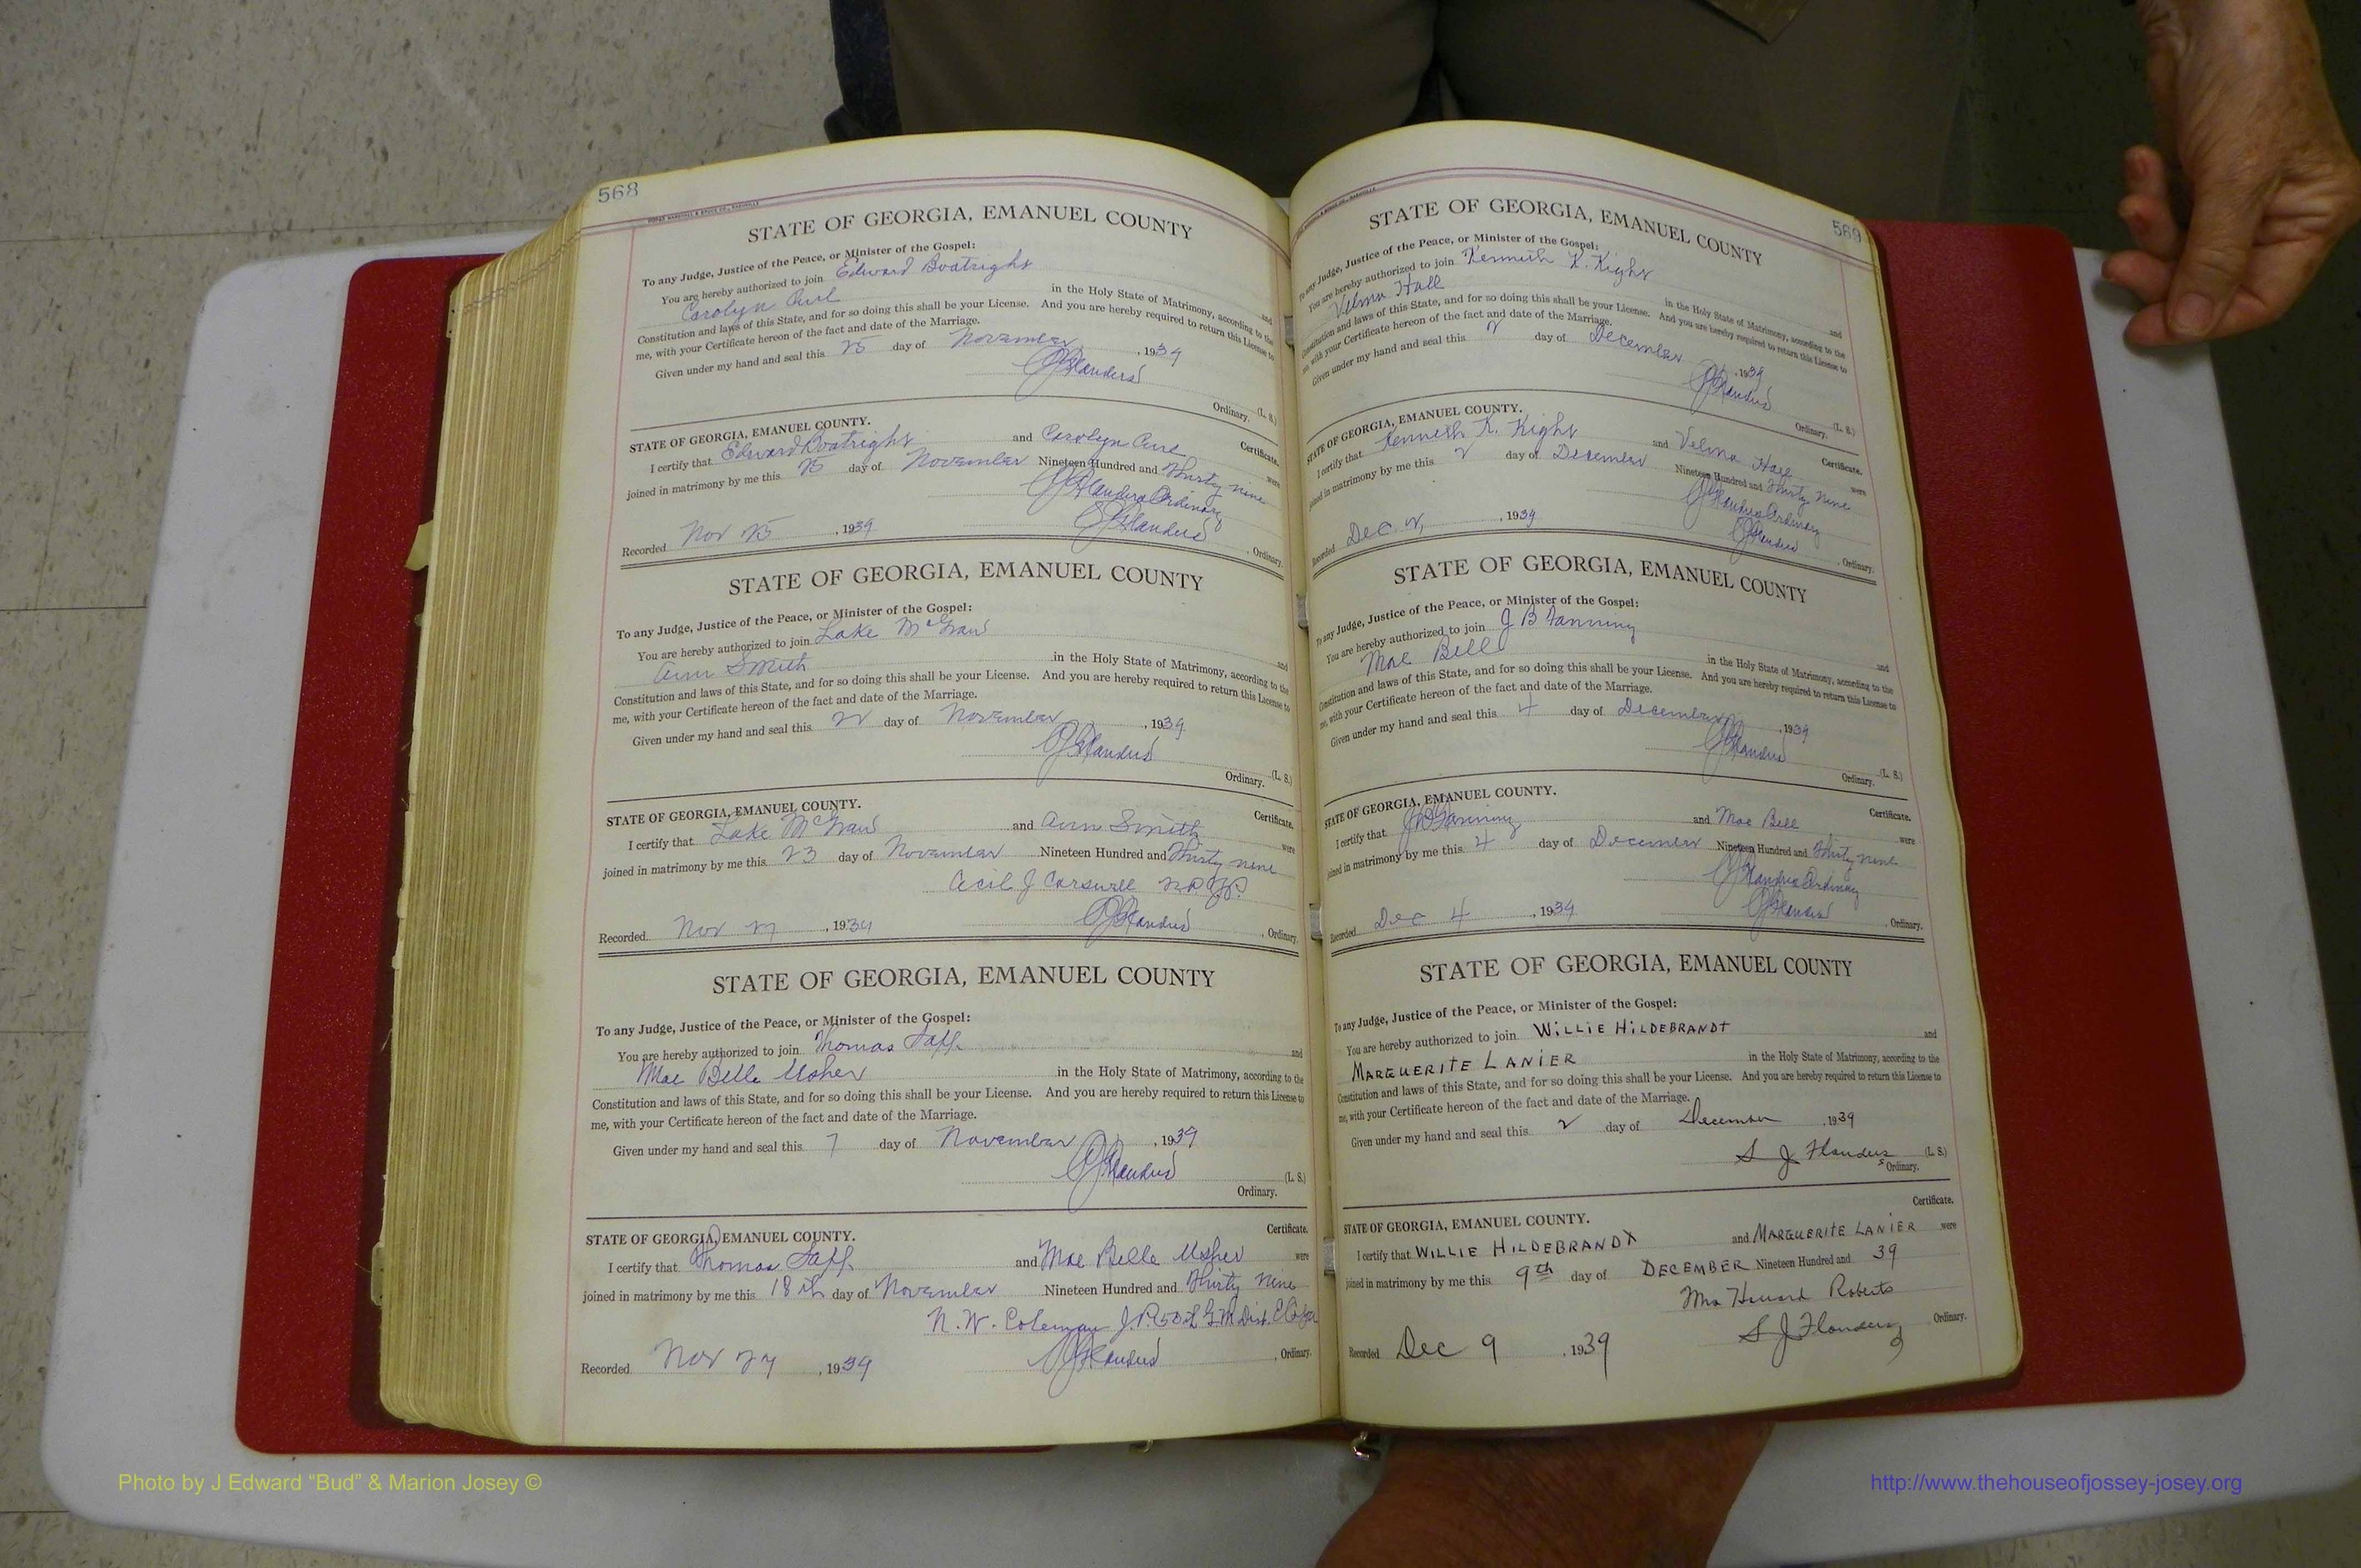 568
STATE OF GEORGIA, EMANUEL COUNTY
To any Judge, Justice of the Peace, or Minister of the Gospel:
You are hereby authorized to join Edward Boatright and
Carolyn in the Holy State of Matrimony, according to the
Constitution and laws of this State, and for so doing this shall be your License. And you are hereby required to return this License to
me, with your Certificate hereon of the fact and date of the Marriage.
Given under my hand and seal this 25 day of November, 1939
Flanders (L. S.)
Ordinary.
STATE OF GEORGIA, EMANUEL COUNTY. Certificate.
I certify that Edward Boatright and Carolyn were
joined in matrimony by me this 25 day of November Nineteen Hundred and Thirty nine
Flanders Ordinary
Recorded Nov 25, 1939 Flanders, Ordinary.
STATE OF GEORGIA, EMANUEL COUNTY
To any Judge, Justice of the Peace, or Minister of the Gospel:
You are hereby authorized to join Lake and
Ann Smith in the Holy State of Matrimony, according to the
Constitution and laws of this State, and for so doing this shall be your License. And you are hereby required to return this License to
me, with your Certificate hereon of the fact and date of the Marriage.
Given under my hand and seal this 22 day of November, 1939
Flanders (L. S.)
Ordinary.
STATE OF GEORGIA, EMANUEL COUNTY. Certificate.
I certify that Lake and Ann Smith were
joined in matrimony by me this 23 day of November Nineteen Hundred and Thirty nine
Cecil J Carswell
Recorded Nov 27, 1939 Flanders, Ordinary.
STATE OF GEORGIA, EMANUEL COUNTY
To any Judge, Justice of the Peace, or Minister of the Gospel:
You are hereby authorized to join Thomas and
Mae Belle Usher in the Holy State of Matrimony, according to the
Constitution and laws of this State, and for so doing this shall be your License. And you are hereby required to return this License to
me, with your Certificate hereon of the fact and date of the Marriage.
Given under my hand and seal this 7 day of November, 1939
Flanders (L. S.)
Ordinary.
STATE OF GEORGIA, EMANUEL COUNTY. Certificate.
I certify that Thomas and Mae Belle Usher were
joined in matrimony by me this 18th day of November Nineteen Hundred and Thirty nine
N. W. Coleman J.P.
Recorded Nov 27, 1939 Flanders, Ordinary.
569
STATE OF GEORGIA, EMANUEL COUNTY
To any Judge, Justice of the Peace, or Minister of the Gospel:
You are hereby authorized to join Kenneth K. Kight and
Velma Hall in the Holy State of Matrimony, according to the
Constitution and laws of this State, and for so doing this shall be your License. And you are hereby required to return this License to
me, with your Certificate hereon of the fact and date of the Marriage.
Given under my hand and seal this 2 day of December, 1939
Flanders (L. S.)
Ordinary.
STATE OF GEORGIA, EMANUEL COUNTY. Certificate.
I certify that Kenneth K. Kight and Velma Hall were
joined in matrimony by me this 2 day of December Nineteen Hundred and Thirty nine
Flanders Ordinary
Recorded Dec. 2, 1939 Flanders, Ordinary.
STATE OF GEORGIA, EMANUEL COUNTY
To any Judge, Justice of the Peace, or Minister of the Gospel:
You are hereby authorized to join J B Fanning and
Mae Bell in the Holy State of Matrimony, according to the
Constitution and laws of this State, and for so doing this shall be your License. And you are hereby required to return this License to
me, with your Certificate hereon of the fact and date of the Marriage.
Given under my hand and seal this 4 day of December, 1939
Flanders (L. S.)
Ordinary.
STATE OF GEORGIA, EMANUEL COUNTY. Certificate.
I certify that J B Fanning and Mae Bell were
joined in matrimony by me this 4 day of December Nineteen Hundred and Thirty nine
Flanders Ordinary
Recorded Dec 4, 1939 Flanders, Ordinary.
STATE OF GEORGIA, EMANUEL COUNTY
To any Judge, Justice of the Peace, or Minister of the Gospel:
You are hereby authorized to join WILLIE HILDEBRANDT and
MARGUERITE LANIER in the Holy State of Matrimony, according to the
Constitution and laws of this State, and for so doing this shall be your License. And you are hereby required to return this License to
me, with your Certificate hereon of the fact and date of the Marriage.
Given under my hand and seal this 2 day of December, 1939
S J Flanders (L. S.)
Ordinary.
Certificate.
STATE OF GEORGIA, EMANUEL COUNTY.
I certify that WILLIE HILDEBRANDT and MARGUERITE LANIER were
joined in matrimony by me this 9th day of DECEMBER Nineteen Hundred and 39
Howard Roberts
Recorded Dec 9, 1939 S J Flanders Ordinary.
Photo by J Edward “Bud” & Marion Josey ©
http://www.thehouseofjossey-josey.org